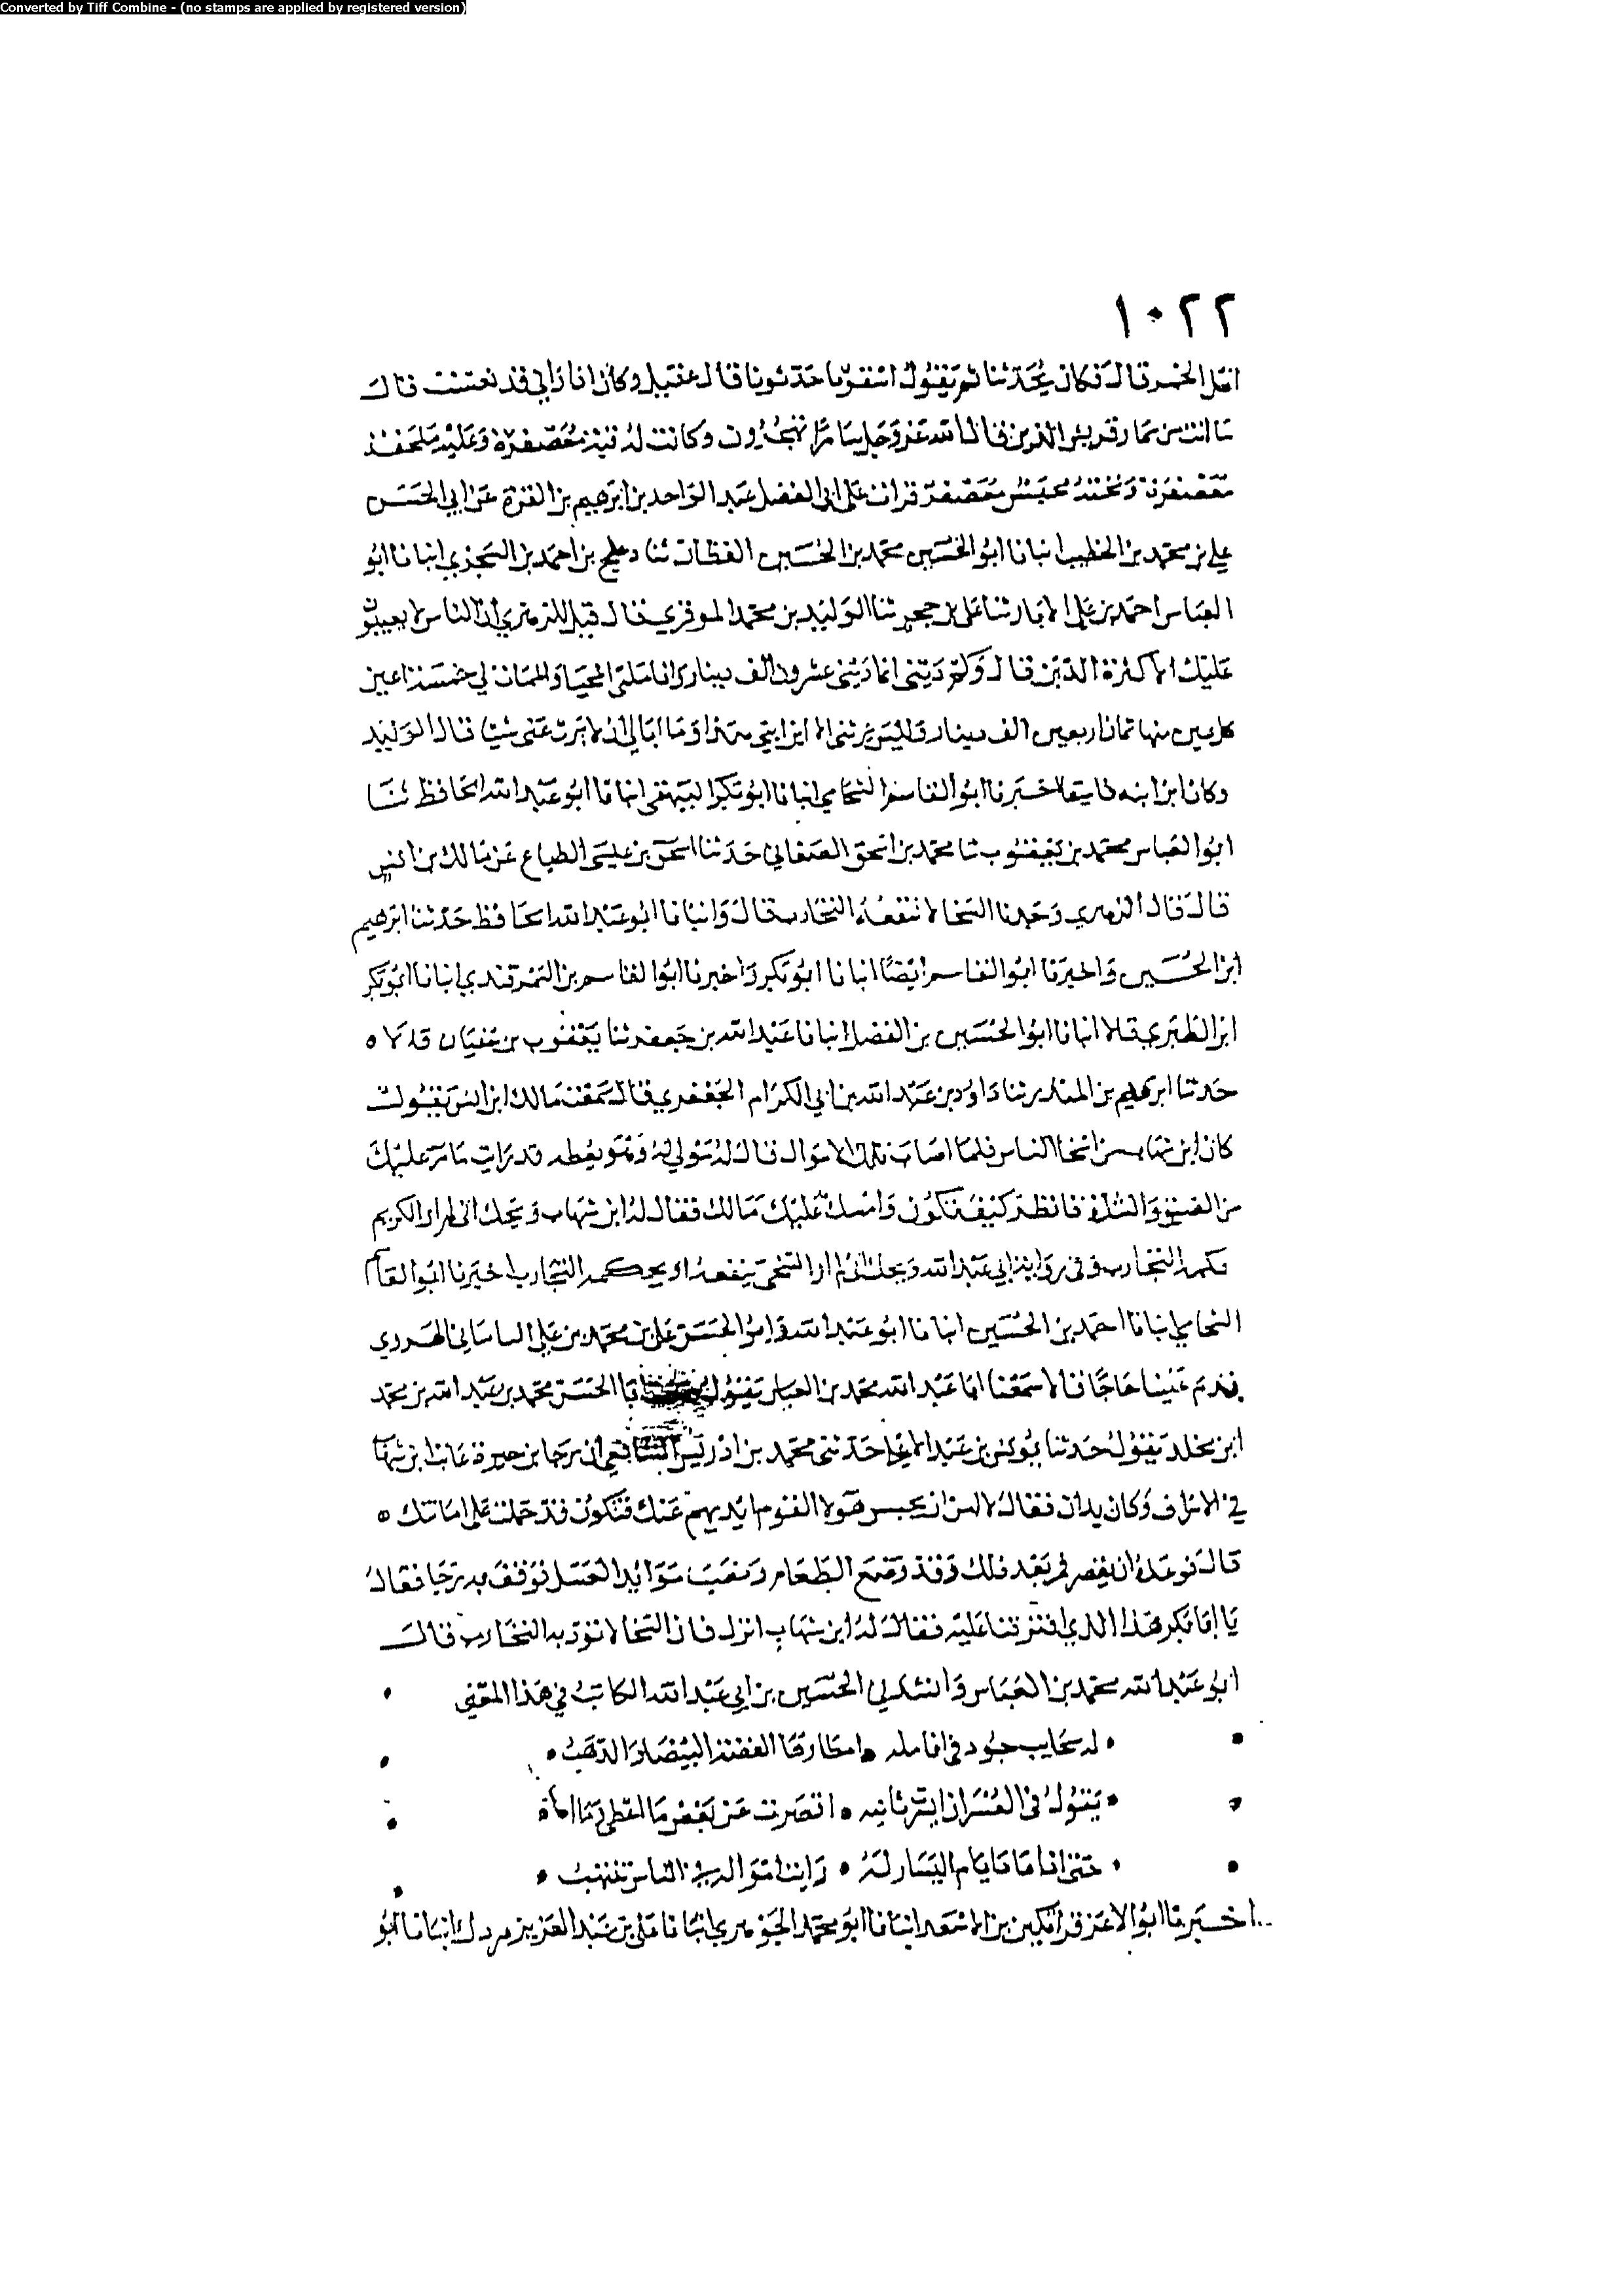 Converted by Tiff Combine - (no stamps are applied by registered version)
١٠٢٢
اهل الخمر قال فكان يحدثنا ثم يقول اسقونا حدثونا قال عقيل وكان اذا راني قد نعست قال
ما انت من سمار قريش الذين قال الله عز وجل سامرا تهجرون وكانت له قبة معصفرة وعليه ملحفة
معصفرة وتحته محبس معصفر قرات على ابي الفضل عبد الواحد بن ابرهيم بن القزة عن ابي الحسن
علي بن محمد بن الخطيب انبانا ابو الحسين محمد بن الحسين القطان ثنا دعلج بن احمد بن السجزي انبانا ابو
العباس احمد بن علي الابار ثنا علي بن حجر ثنا الوليد بن محمد الموقري قال قيل للزهري ان الناس لا يعيبون
عليك الا كثرة الدين قال وكم ديني انما ديني عشرون الف دينار وانا ملئ المحيا والممات لي خمسة اعين
كل عين منها ثمان اربعين الف دينار وليس يرثني الا ابن ابني هذا وما ابالي ان لا يرث عني شيا قال الوليد
وكان ابن ابنه فاسقا اخبرنا ابو القاسم الشحامي انبانا ابو بكر البيهقي انبانا ابو عبد الله الحافظ ثنا
ابو العباس محمد بن يعقوب ثنا محمد بن اسحق الصغاني حدثنا اسحق بن عيسى الطباع عن مالك بن انس
قال قال الزهري وجدنا السخا لا تنفعه التجارب قال وانبانا ابو عبد الله الحافظ حدثنا ابرهيم
ابن الحسين واخبرنا ابو القاسم ايضا انبانا ابو بكر واخبرنا ابو القاسم بن السمرقندي انبانا ابو بكر
ابن الطبري قالا انبانا ابو الحسين بن الفضل انبانا عبد الله بن جعفر ثنا يعقوب بن سفيان قالا ه
حدثنا ابرهيم بن المنذر ثنا داود بن عبد الله بن ابي الكرام الجعفري قال سمعت مالك ابن انس يقول
كان ابن شهاب من اسخا الناس فلما اصاب تلك الاموال قال له مولي له وهو يعظه قد رايت ما مر عليك
من الضيق والشدة فانظر كيف تكون وامسك عليك مالك فقال له ابن شهاب ويحك اني لم ار الكريم
تحكمه التجارب وفي رواية ابي عبد الله ويحك اني لم ار السخي ينفعه او يحكمه التجارب اخبرنا ابو القاسم
الشحامي انبانا احمد بن الحسين انبانا ابو عبد الله وابو الحسن علي بن محمد بن علي الهروي
قدم علينا حاجا قالا سمعنا ابا عبد الله محمد بن العباس يقول ابا الحسن محمد بن عبد الله بن محمد
ابن مخلد يقول حدثنا يونس بن عبد الاعلى حدثني محمد بن ادريس الشافعي ان رجا بن حيوة عاتب ابن شهاب
في الاسراف وكان يدان فقال لا امن ان يحبس هولا القوم ايديهم عنك فتكون قد حملت على امانتك ه
قال فوعده ان يقصر ثم بعد ذلك وقد وضع الطعام ونصب موائد العسل فوقف به رجا فقال
يا ابا بكر هذا الذي افترقنا عليه فقال له ابن شهاب انزل فان السخا لا تؤدبه التجارب قال
ابو عبد الله محمد بن العباس وانشدني الحسين بن ابي عبد الله الكاتب في هذا المعنى
له سحايب جود في انامله • امطارها الفضة البيضا والذهب •
يقول في العسر ان ايسرت ثانيه • اقصرت عن بعض ما اعطي وما اهب
حتى اذا ما عاد ايام اليسار له • رايت امواله في الناس تنتهب •
اخبرنا ابو الاعز قراتكين بن الاسعد انبانا ابو محمد الجوهري انبانا علي بن عبد العزيز بن مردك انبانا ابو